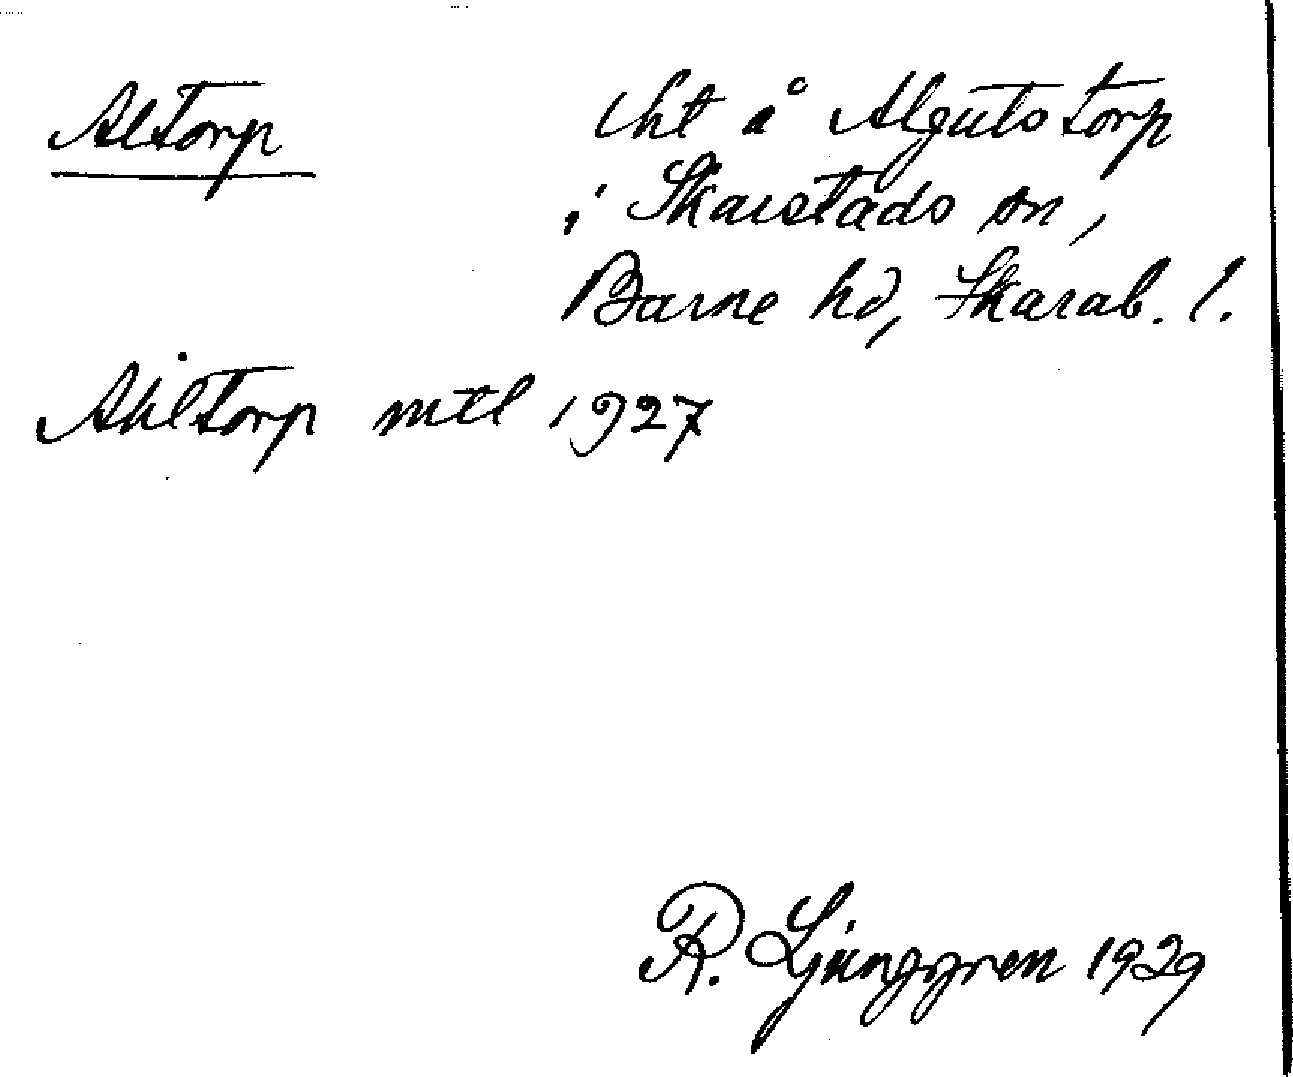 Altorp
lht å Algutstorp
i Skarstads sn,
Barne hd, Skarab. l.
Ahltorp mtl 1927
R. Ljunggren 1929